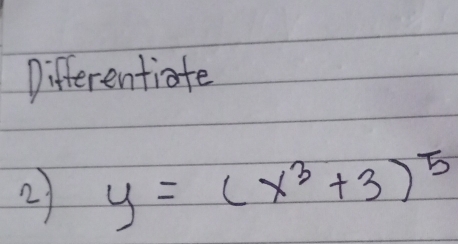 Differentiate
2) y = (x³ + 3)⁵